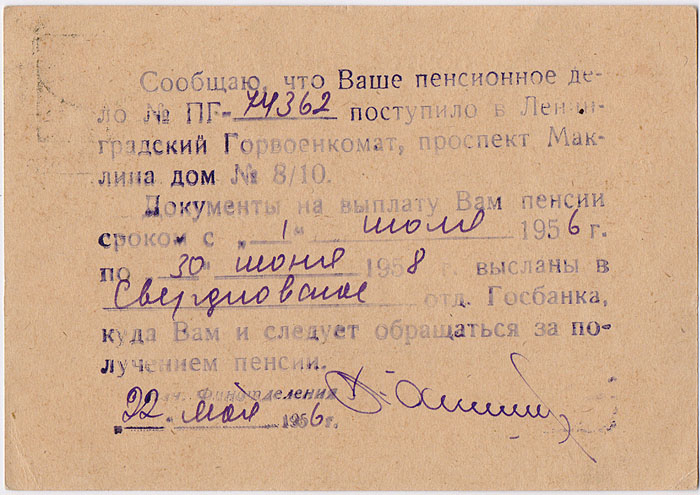 Сообщаю, что Ваше пенсионное де-
ло № ПГ-74362 поступило в Ленин-
градский Горвоенкомат, проспект Мак-
лина дом № 8/10.
Документы на выплату Вам пенсии
сроком с „1“ июля 1956 г.
по „30“ июня 1958 г. высланы в
Свердловское отд. Госбанка,
куда Вам и следует обращаться за по-
лучением пенсии.
Нач. Финотделения
„22“ мая 1956 г.